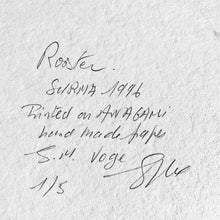 Rooster.
SURMA 1996
Printed on AWAGAMI
hand made paper
S.M. Voge
1/5